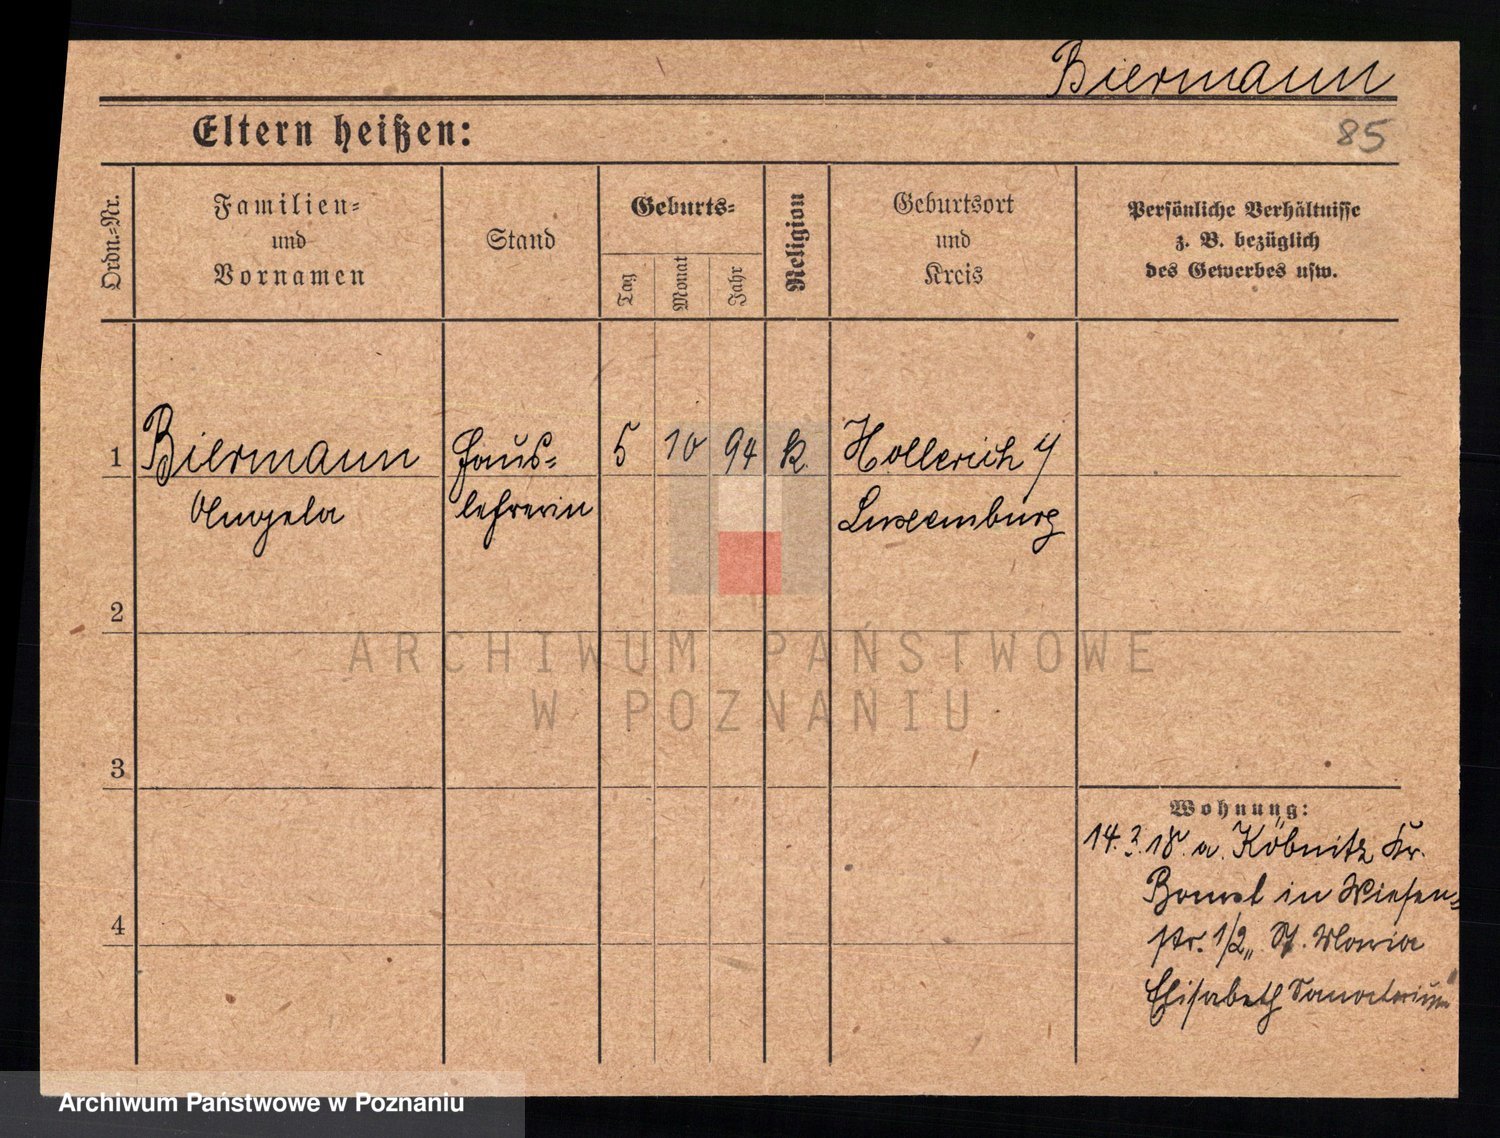 Biermann
85
Eltern heißen:
Ordn.-Nr.
Familien-
und
Vornamen
Stand
Geburts-
Tag
Monat
Jahr
Religion
Geburtsort
und
Kreis
Persönliche Verhältnisse
z. B. bezüglich
des Gewerbes usw.
1 Biermann Haus- 5 10 94 k. Hollerich
Angela lehrerin Luxemburg
2
3
4
Wohnung:
14. 3. 18. a. Köbnitz Kr.
Bomst in Wiesen-
str. 1/2 „ St. Maria
Elisabeth Sanatorium
ARCHIWUM PAŃSTWOWE
W POZNANIU
Archiwum Państwowe w Poznaniu